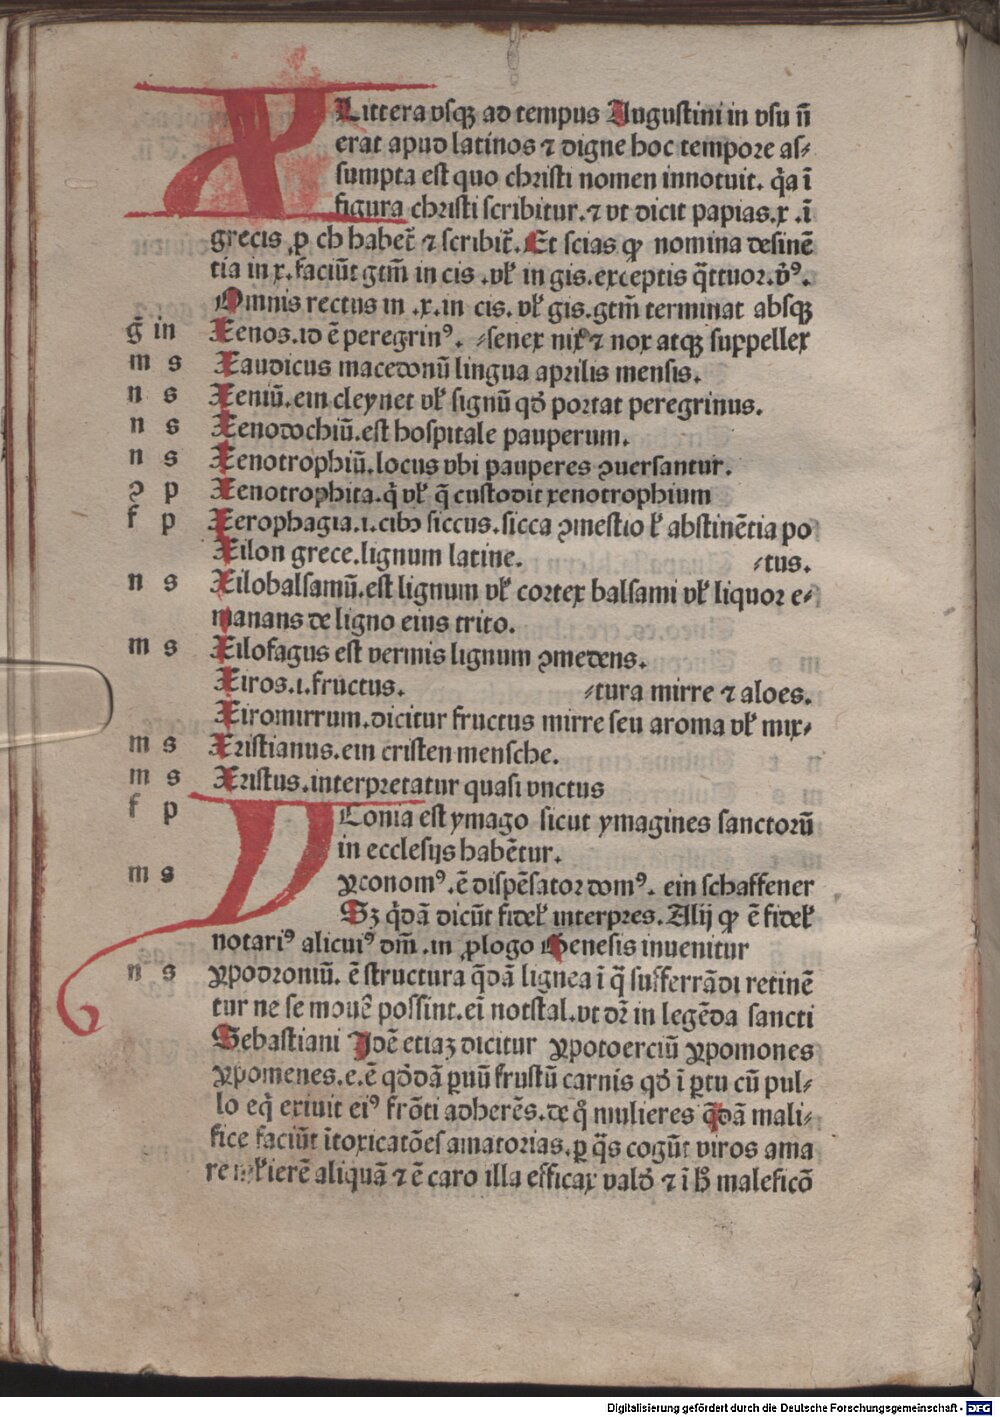 X Littera vsqꝫ ad tempus Augustini in vsu nō
erat apud latinos ⁊ digne hoc tempore as⸗
sumpta est quo christi nomen innotuit. q̄a ī
figura christi scribitur. ⁊ vt dicit papias. x .ī
grecis ꝓ ch habet̄ ⁊ scribit̄. Et scias qꝫ nomina desinē
tia in x. faciūt gtm̄ in cis .vł in gis. exceptis q̄ttuor. v̄ꝰ.
Omnis rectus in .x. in cis. vł gis. gtm̄ terminat absqꝫ
ḡ in Xenos. id ē peregrinꝰ. ⸗senex nix ⁊ nox atqꝫ suppellex
m s Xaudicus macedonū lingua aprilis mensis.
n s Xeniū. ein cleynet vł signū qd̄ portat peregrinus.
n s Xenodochiū. est hospitale pauperum.
n s Xenotrophiū. locus vbi pauperes ꝯuersantur.
ꝯ p Xenotrophita. q̄ vł q̄ custodit xenotrophium
f p Xerophagia. i. cibꝰ siccus. sicca ꝯmestio ł abstinētia po
Xilon grece. lignum latine. ⸗tus.
n s Xilobalsamū. est lignum vł cortex balsami vł liquor e⸗
manans de ligno eius trito.
m s Xilofagus est vermis lignum ꝯmedens.
Xiros. i. fructus. ⸗tura mirre ⁊ aloes.
Xiromirrum. dicitur fructus mirre seu aroma vł mix⸗
m s Xristianus. ein cristen mensche.
m s Xristus. interpretatur quasi vnctus
f p Y Conia est ymago sicut ymagines sanctorū
in ecclesijs habētur.
m s yconomꝰ. ē dispēsator domꝰ. ein schaffener
Sꝫ q̄dā dicūt fideł interpres. Alij qꝫ ē fideł
notariꝰ alicuiꝰ dm̄. in ꝓlogo Genesis inuenitur
n s ypodroniū. ē structura q̄dā lignea ī q̄ sufferrādi retinē
tur ne se mouē possint. eī notstal. vt dr̄ in legēda sancti
Sebastiani Idē etiaꝫ dicitur ypotoerciū ypomones
ypomenes. e. ē qd̄dā ꝑuū frustū carnis qd̄ ī ꝑtu cū pul⸗
lo eq̄ exiuit eiꝰ frōti adherēs. de q̄ mulieres q̄dā mali⸗
fice faciūt ītoxicatōes amatorias. ꝑ q̄s cogūt viros ama
re aliquā ⁊ ē caro illa efficax vald̄ ⁊ ī maleficō
Digitalisierung gefördert durch die Deutsche Forschungsgemeinschaft - DFG